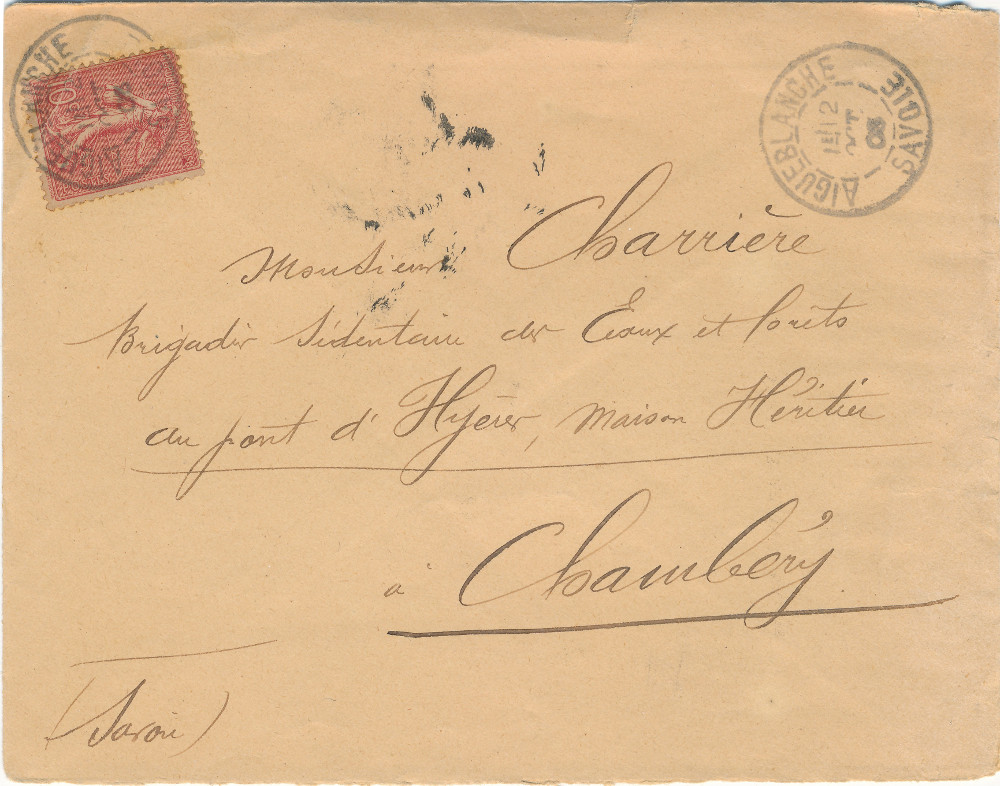 AIGUEBLANCHE
SAVOIE
12
03
10
Monsieur Charrière
Brigadier Sédentaire des Eaux et forêts
au pont d'Hyères, maison Héritier
à Chambéry
(Savoie)